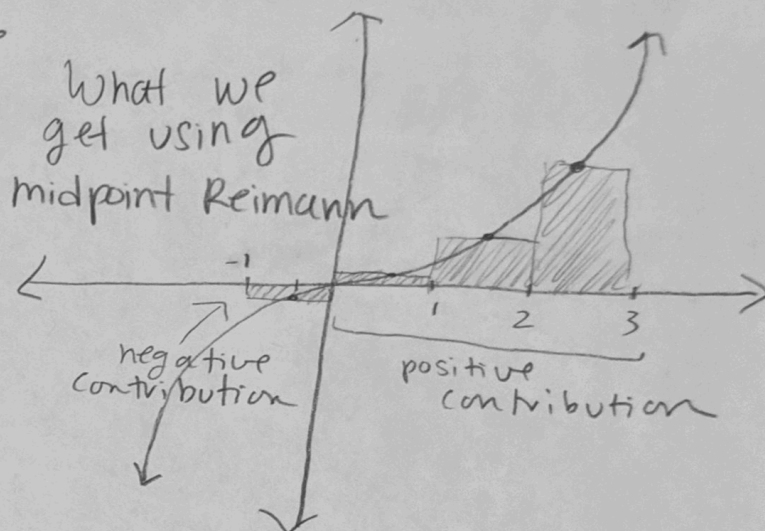 What we
get using
midpoint Reimann
-1
1
2
3
negative
contribution
positive
contribution